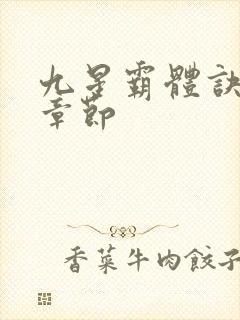 九星霸體訣
章節
香菜牛肉餃子